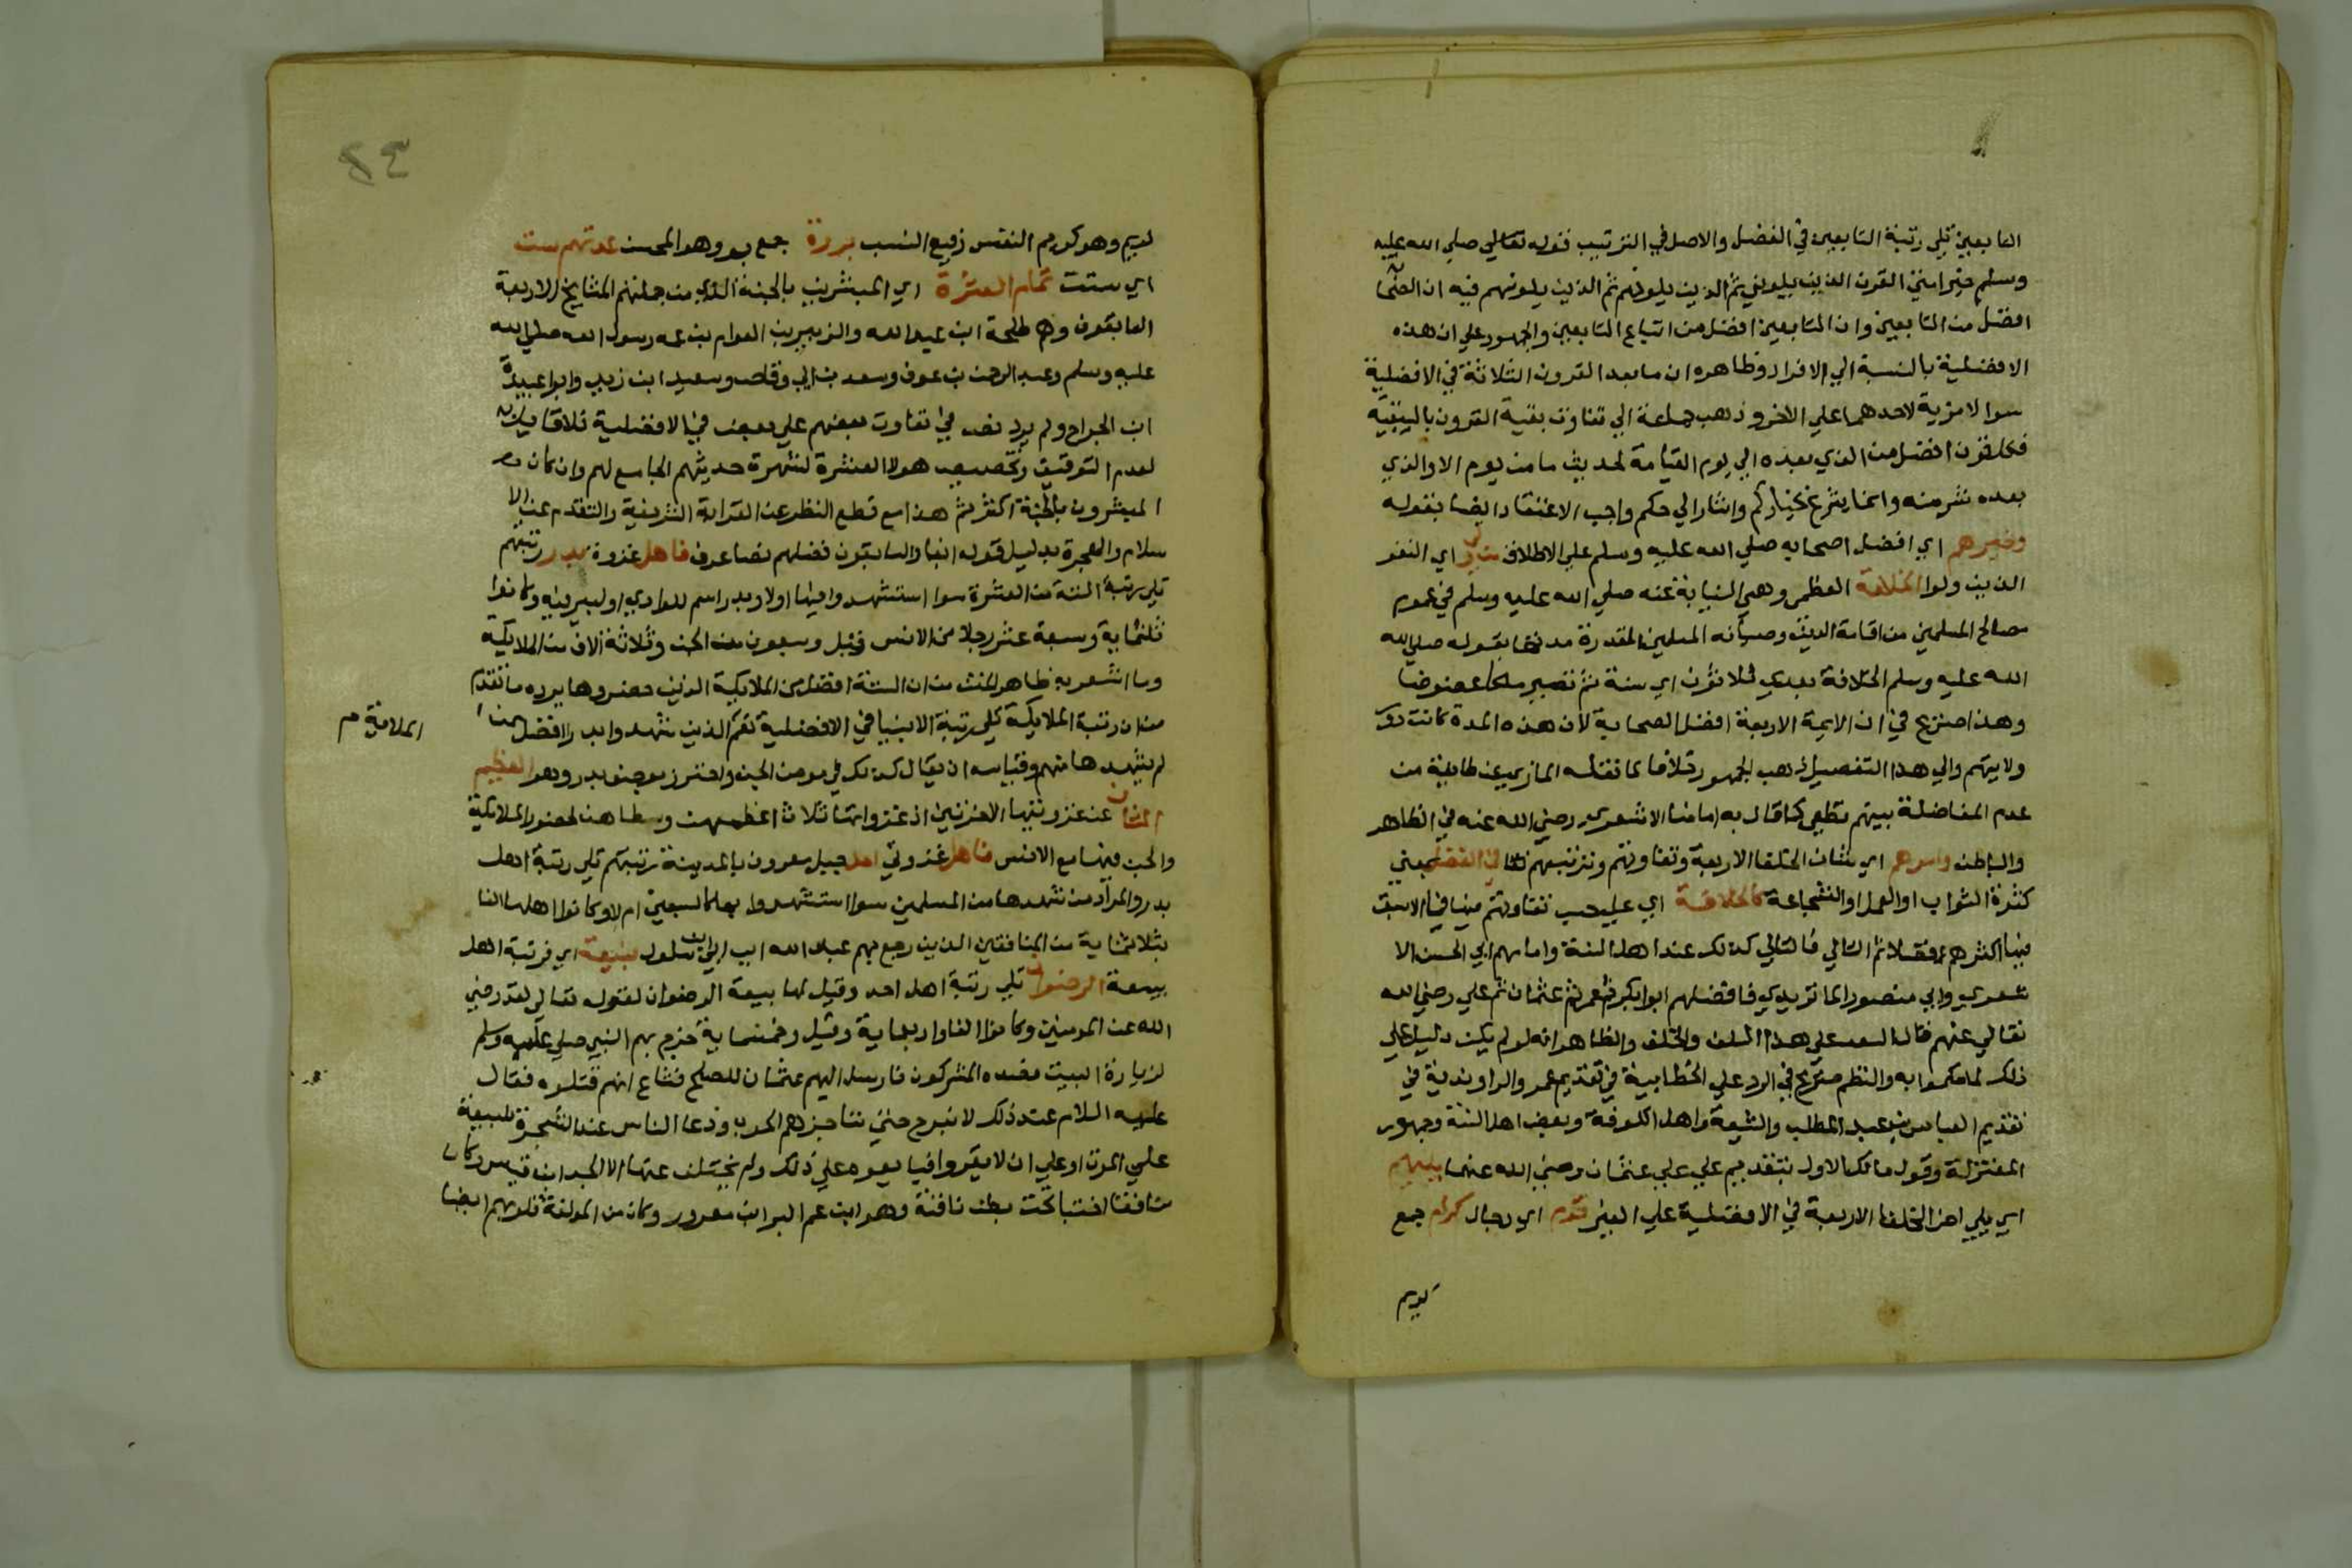 التابعين تلي رتبة التابعين في الفضل والاصل في الترتيب قوله تعالي صلي الله عليه
وسلم خير امتي القرن الذين يلوني ثم الذين يلونهم ثم الذين يلونهم فيه ان الصحا
افضل من التابعين وان التابعين افضل من اتباع التابعين والجمهور علي ان هذه
الافضلية بالنسبة الي الافراد وظاهره ان ما بعد القرون الثلاثة في الافضلية
سوا لا مزية لاحدهما علي الاخر وذهب جماعة الي تفاوت بقية القرون بالسبقية
فكل قرن افضل من الذي بعده الي يوم القيامة لحديث ما من يوم الا والذي
بعده شر منه وانما يسرع بخياركم واشار الي حكم واجب الاعتقاد ايضا بقوله
وخيرهم اي افضل اصحابه صلي الله عليه وسلم علي الاطلاق من ولي اي النفر
الذين ولوا الخلافة العظمي وهي النيابة عنه صلي الله عليه وسلم في عموم
مصالح المسلمين من اقامة الدين وصيانه المسلمين المقدرة مدتها بقوله صلي الله
الله عليه وسلم الخلافة بعدي ثلاثون اي سنة ثم تصير ملكا عضوضا
وهذا صريح في ان الايمة الاربعة افضل الصحابة لان هذه المدة كانت دور
ولايتهم والي هذا التفصيل ذهب الجمهور خلافا لما نقله المازري عن طايفة من
عدم المفاضلة بينهم قطعي كما قال به امامنا الاشعري رضي الله عنه في الظاهر
والباطن وامرهم اي شان الخلفا الاربعة وتفاوتهم وترتيبهم في الفضل بمعني
كثرة الثواب او العلم او الشجاعة كالخلافة اي علي حسب تفاوتهم فيها فالاسبق
فيها اكثرهم فضلا ثم التالي فالتالي كذلك عند اهل السنة وامامهم ابي الحسن الا
شعري وابي منصور الماتريدي فافضلهم ابوا بكر ثم عمر ثم عثمان ثم علي رضي الله
تعالي عنهم قال السعد علي هذا السلف والخلف والظاهر انه لو لم يكن دليل علي
ذلك لما حكموا به والنظم صريح في الرد علي الخطابية في تقديم عمر والراوندية في
تقديم العباس بن عبد المطلب والشيعة واهل الكوفة وبعض اهل السنة وجمهور
المعتزلة وقول مالك الاول بتقديم علي علي عثمان رضي الله عنهما يليهم
اي يلي اخر الخلفا الاربعة في الافضلية علي الغير قوم اي رجال كرام جمع
كريم
٤٣
كريم وهو كريم النفس رفيع النسب بررة جمع بر وهو المحسن عدتهم ست
اي ستت تمام العشرة اي المبشرين بالجنة الذي من جملتهم المشايخ الاربعة
السابقون وهم طلحة ابن عبد الله والزبير بن العوام بن عمه رسول الله صلي الله
عليه وسلم وعبد الرحمن بن عوف وسعد بن ابي وقاص وسعيد ابن زيد وابوا عبيدة
ابن الجراح ولم يرد نص في تفاوت بعضهم علي بعض في الافضلية فلا قايل به
لعدم التوقيف وتخصيص هولا العشرة لشهرة حديثهم الجامع لهم وان كان
المبشرون بالجنة اكثر ثم هذا مع قطع النظر عن القرابة الشريفة والتقدم عند الا
سلام والهجرة بدليل قوله ايضا والسابقون فضلهم نصا عرف فاهل غزوة بدر رتبتهم
تلي رتبة الستة من العشرة سوا استشهدوا فيها اولا وبدر اسم للوادي او لبير فيه وكانوا
ثلثماية وسبعة عشر رجلا من الانس وقيل وسبعون من الجن وثلاثة الاف من الملايكة
وما اشعر به ظاهر المتن من ان الستة افضل من الملايكة الذين حضروها يرده ما تقدم
من ان رتبة الملايكة تلي رتبة الانبيا في الافضلية نعم الذين شهدوا بدرا افضل من
الملايكة م
لم يشهدها منهم وقياسه ان يقال كذلك في مومن الجن واحترز بوصف بدر وهو العظيم
الشان عن غزوتيها الاخرتين اذ غزواتها ثلاث اعظمهن وسطاهن لحضور الملايكة
والجن فيها مع الانس فاهل غزوتي احد جبل معروف بالمدينة رتبتهم تلي رتبة اهل
بدر والمراد من شهدها من المسلمين سوا استشهدوا بها كالسبعين ام لا وكانوا اهلها الفا
بثلاثماية من المنافقين الذين رجع بهم عبد الله ابن ابي ابن سلول فبيعة اي فرتبة اهل
بيعة الرضوان تلي رتبة اهل احد وقيل لها بيعة الرضوان لقوله تعالي لقد رضي
الله عن المومنين وكانوا الفا واربعماية وقيل وخمسماية خرج بهم النبي صلي عليه وسلم
لزيارة البيت فصده المشركون فارسل اليهم عثمان للصلح فشاع انهم قتلوه فقال
عليه السلام عند ذلك لا نبرح حتي نناجزهم الحرب ودعا الناس عند الشجرة للبيعة
علي الموت او علي ان لا يفروا فبايعوه علي ذلك ولم يتخلف عنها الا الجد ابن قيس وكان
منافقا اختبا تحت بطن ناقته وهو ابن عم البرا ابن معرور وكان من المولفة قلوبهم ايضا